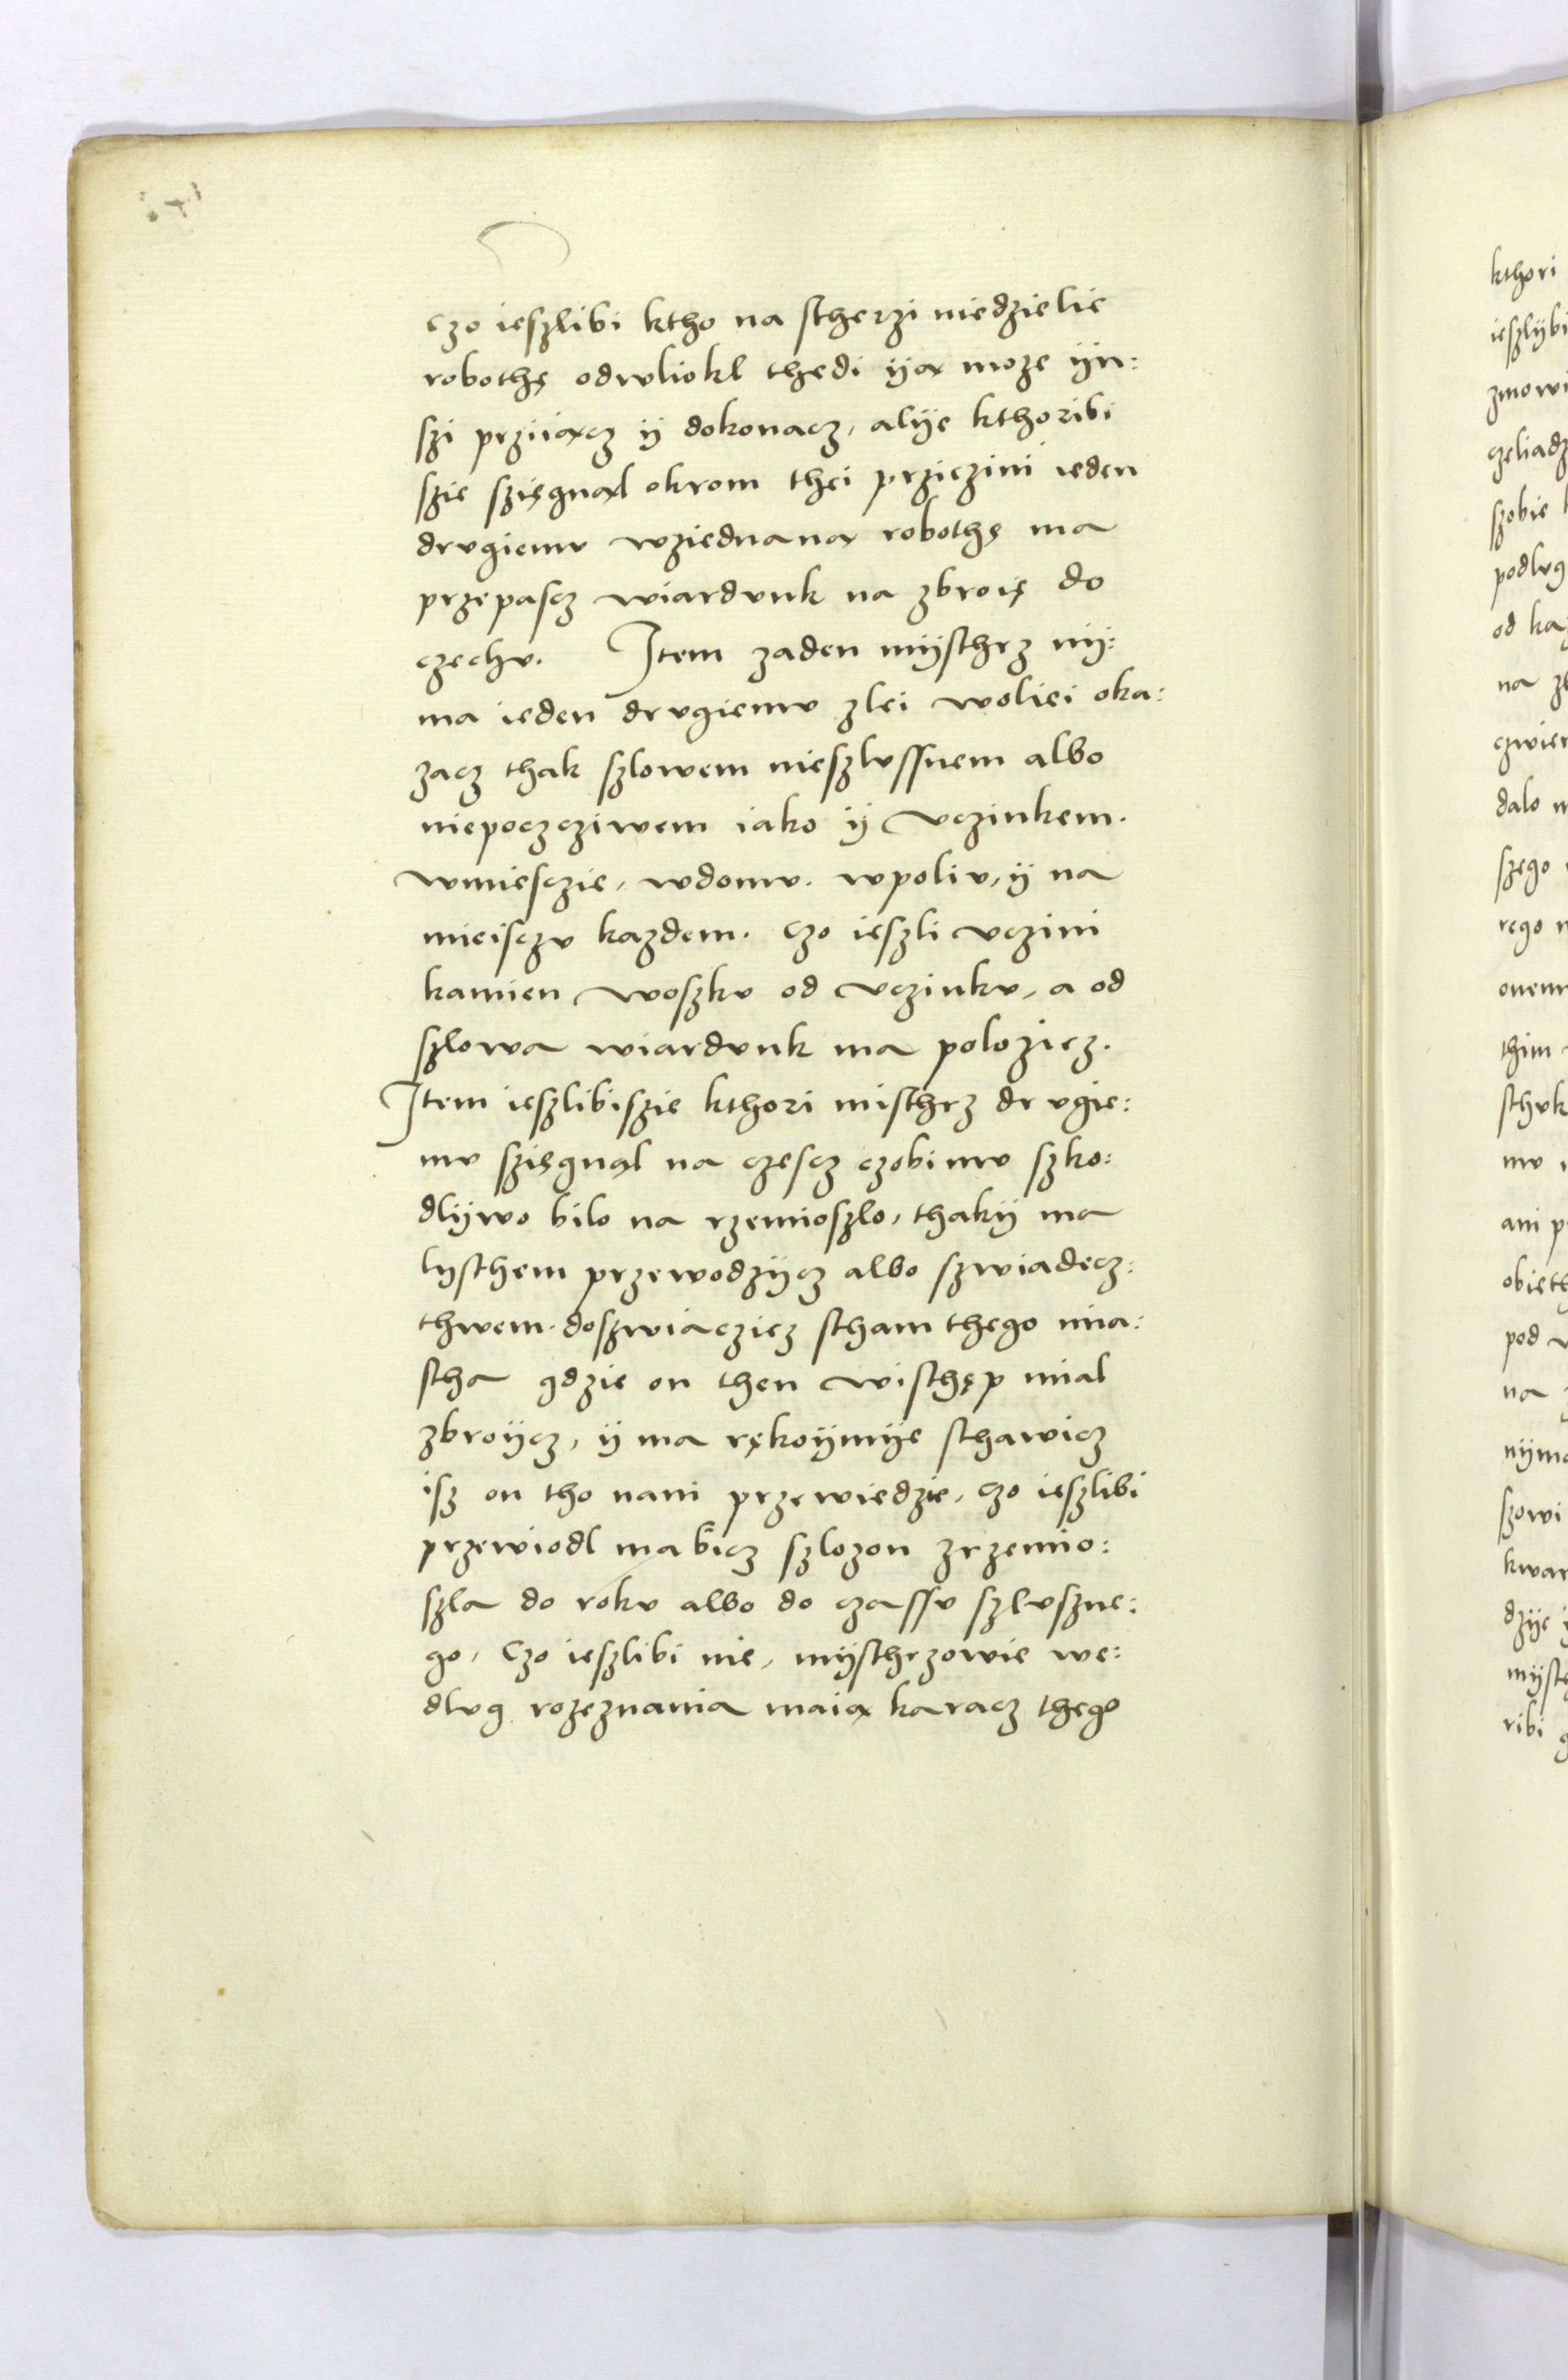 czo ieszlibi ktho na stherzi niedzielie
robothę odwliokl thedi ÿą może ÿn:
szi prziiącz ÿ dokonacz, alÿe kthoribi
szie szięgnąl okrom thei prziczini ieden
drvgiemv wziednaną robothę ma
przepascz wiardvnk na zbroię do
czechv. Item zaden mÿsthrz nÿ:
ma ieden drvgiemv zlei woliei oka:
zacz thak szlowem nieszlvssnem albo
niepoczcziwem iako ÿ vczinkem.
wmiesczie, wdomv. wpoliv, ÿ na
mieisczv kazdem. czo ieszli vczini
kamien woszkv od vczinkv, a od
szlowa wiardvnk ma polozicz.
Item ieszlibiszie kthori misthrz drvgie:
mv szięgnąl na czescz czobimv szko:
dlÿwo bilo na rzemioszlo, thakÿ ma
lysthem przewodzÿcz albo szwiadecz:
thwem. doszwiaczicz stham thego mia:
stha gdzie on then wisthęp mial
zbroÿcz, ÿ ma rękoÿmÿe sthawicz
isz on tho nani przewiedzie, czo ieszlibi
przewiodl ma bicz szlozon zrzemio:
szla do rokv albo do czassv szlvszne:
go, Czo ieszlibi nie, mÿsthrzowie we:
dlvg rozeznania maią karacz thego
kthori
ieszlÿbi
zmowi
czeliadz
szobie
podlvg
od
na
dalo
szego
rego
thim
mv
ani
pod
na
szowi
mÿst
ribi